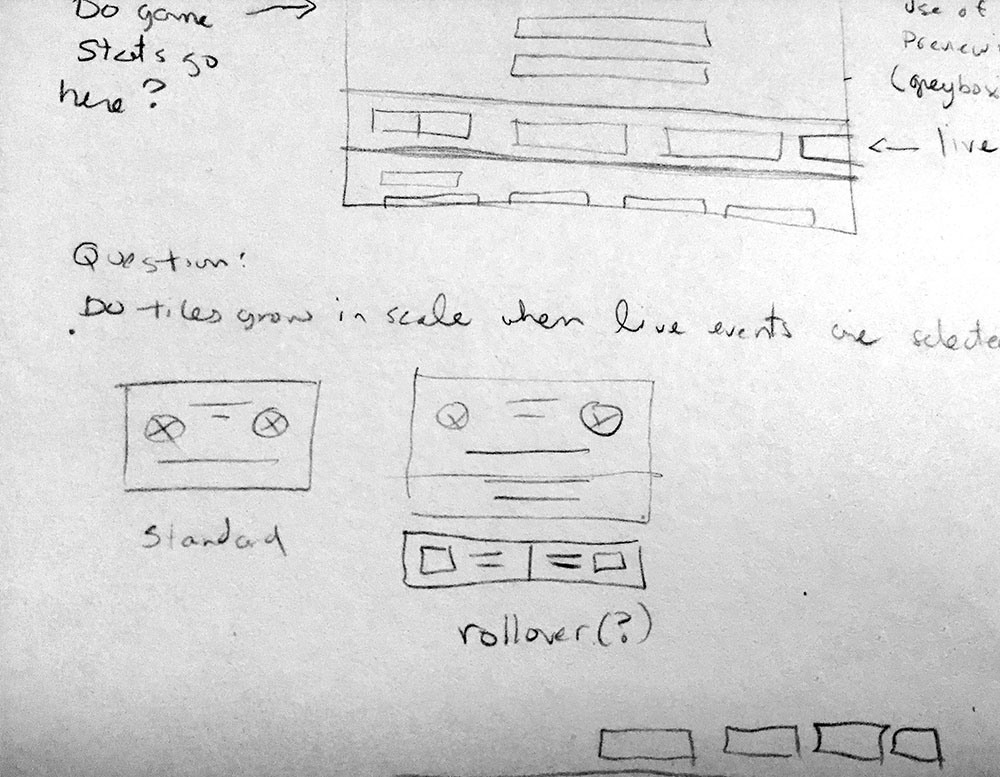 Do game
Stats go
here?
use of
Preview
(greybox
← live
Question:
Do tiles grow in scale when live events are selecte
Standard
rollover(?)